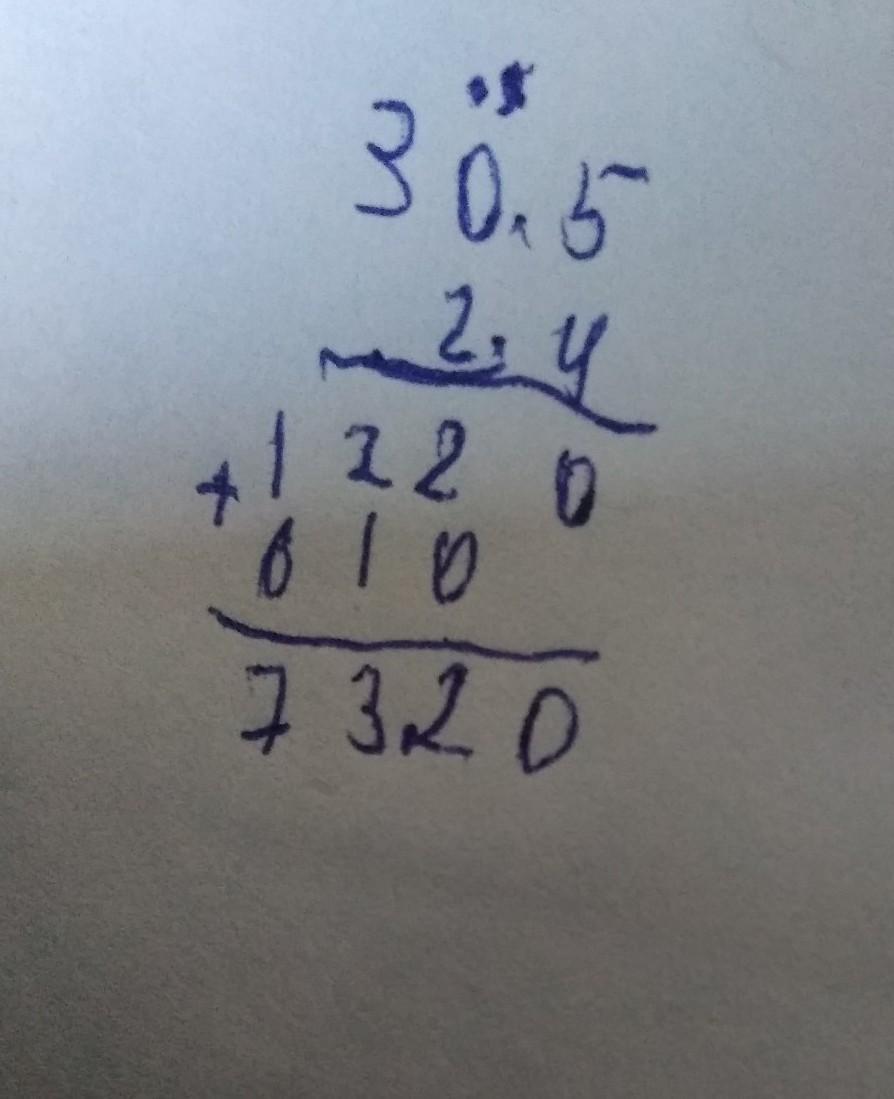 30.5
2.4
+1220
610
73.20